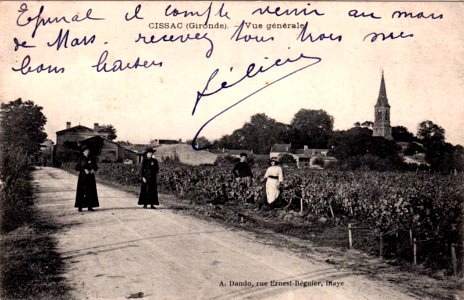 Epinal il compte venir au mois
CISSAC (Gironde). - Vue générale
de Mars. recevez tous trois mes
bons baisers
félicie
A. Dando, rue Ernest-Régnier, Blaye